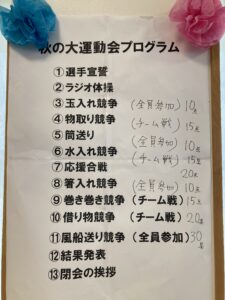 秋の大運動会プログラム
①選手宣誓
②ラジオ体操
③玉入れ競争 (全員参加) 10点
④物取り競争 (チーム戦) 15点
⑤筒送り (全員参加) 10点
⑥水入れ競争 (チーム戦) 15点
⑦応援合戦 20点
⑧箸入れ競争 (全員参加) 10点
⑨巻き巻き競争 (チーム戦) 15点
⑩借り物競争 (チーム戦) 20点
⑪風船送り競争 (全員参加) 30点
⑫結果発表
⑬閉会の挨拶